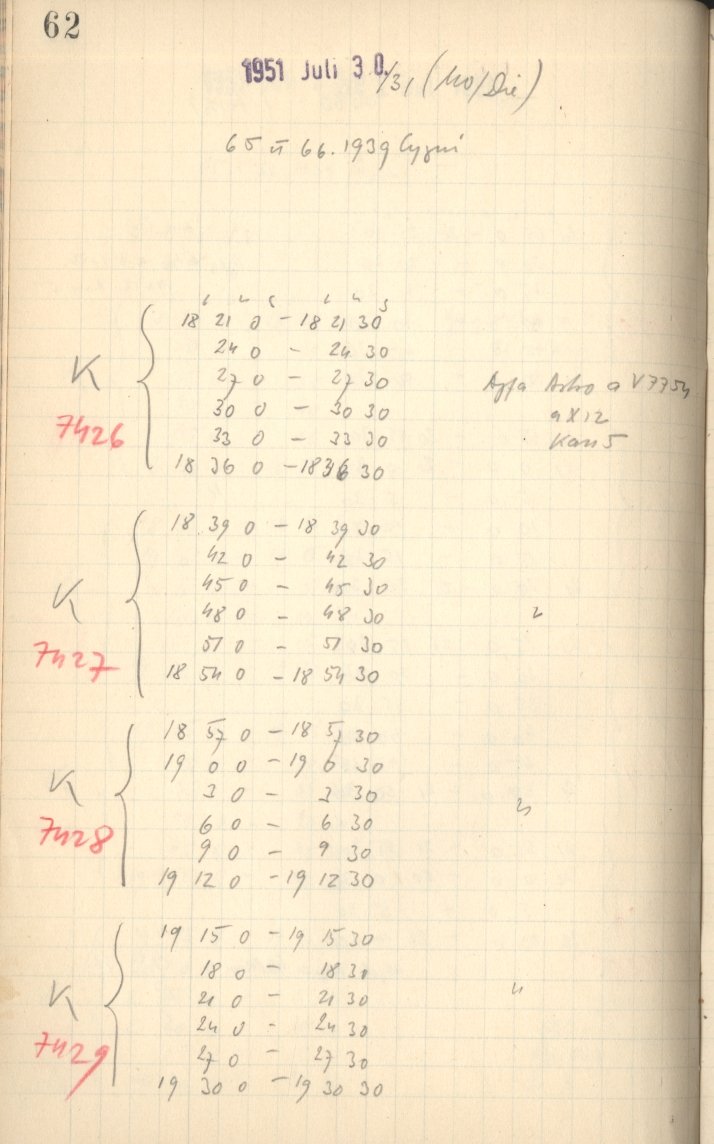 62
1951 Juli 30./31 (Mo/Die)
65 u 66.1939 Cygni
h m s h m s
18 21 0 - 18 21 30
24 0 - 24 30
K 27 0 - 27 30 Agfa Astro a V7754
7426 30 0 - 30 30 a X 12
33 0 - 33 30 Kass 5
18 36 0 - 18 36 30
18 39 0 - 18 39 30
42 0 - 42 30
K 45 0 - 45 30
48 0 - 48 30 "
7427 51 0 - 51 30
18 54 0 - 18 54 30
18 57 0 - 18 57 30
19 0 0 - 19 0 30
K 3 0 - 3 30 "
7428 6 0 - 6 30
9 0 - 9 30
19 12 0 - 19 12 30
19 15 0 - 19 15 30
18 0 - 18 30
K 21 0 - 21 30 "
24 0 - 24 30
7429 27 0 - 27 30
19 30 0 - 19 30 30